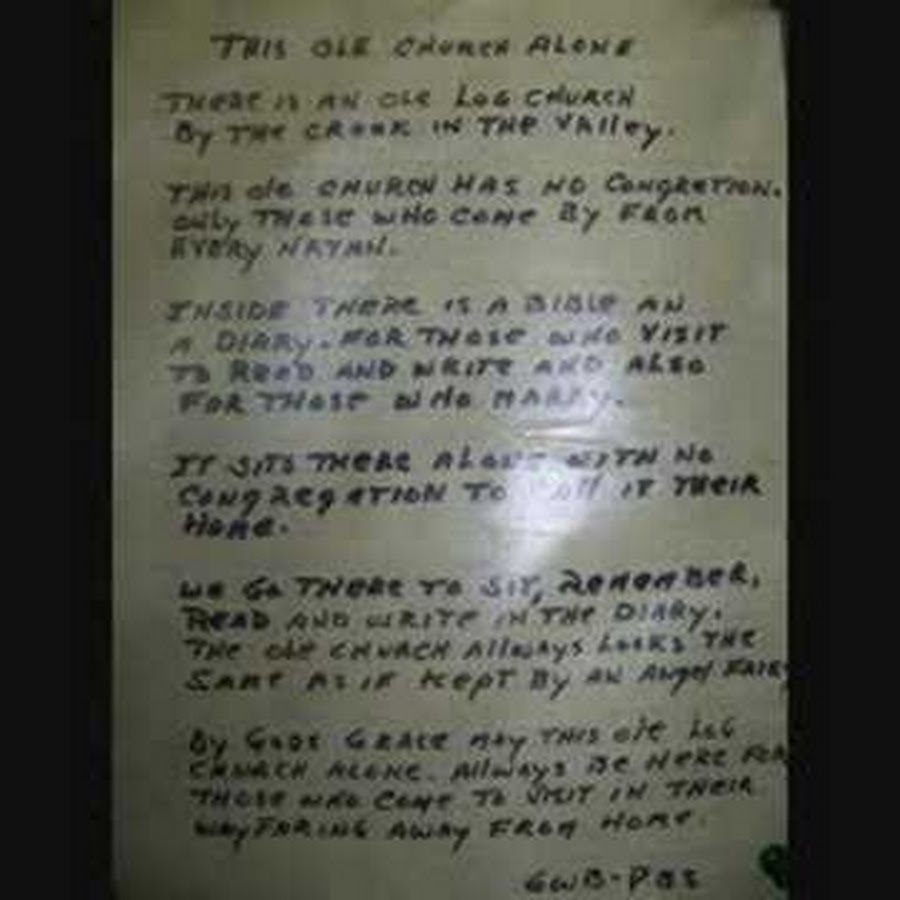 THIS OLE CHURCH ALONE
THERE IS AN OLE LOG CHURCH
By THE CROOK IN THE VAlley.
THIS OLE CHURCH HAS NO CONGRETION.
ONly THOSE WHO COME By FROM
EVERy NATAN.
INSIDE THERE IS A BIBLE AN
A DIARy. FOR THOSE WHO VISIT
TO READ AND WRITE AND ALSO
FOR THOSE WHO MARRy.
IT SITS THERE ALONE WITH NO
CONgREgATION TO CAll IT THEIR
HOME.
WE GO THERE TO SIT, REMEMBER,
READ AND WRITE IN THE DIARy.
THE OLE CHURCH AllWAyS LOOKS THE
SAME AS IF KEPT By AN ANgel FAIRy
By GODS GRACE MAy THIS OLE LOG
CHURCH ALONE. AllWAyS BE HERE FOR
THOSE WHO COME TO VISIT IN THEIR
WAyFARING AWAy FROM HOME.
GWB-